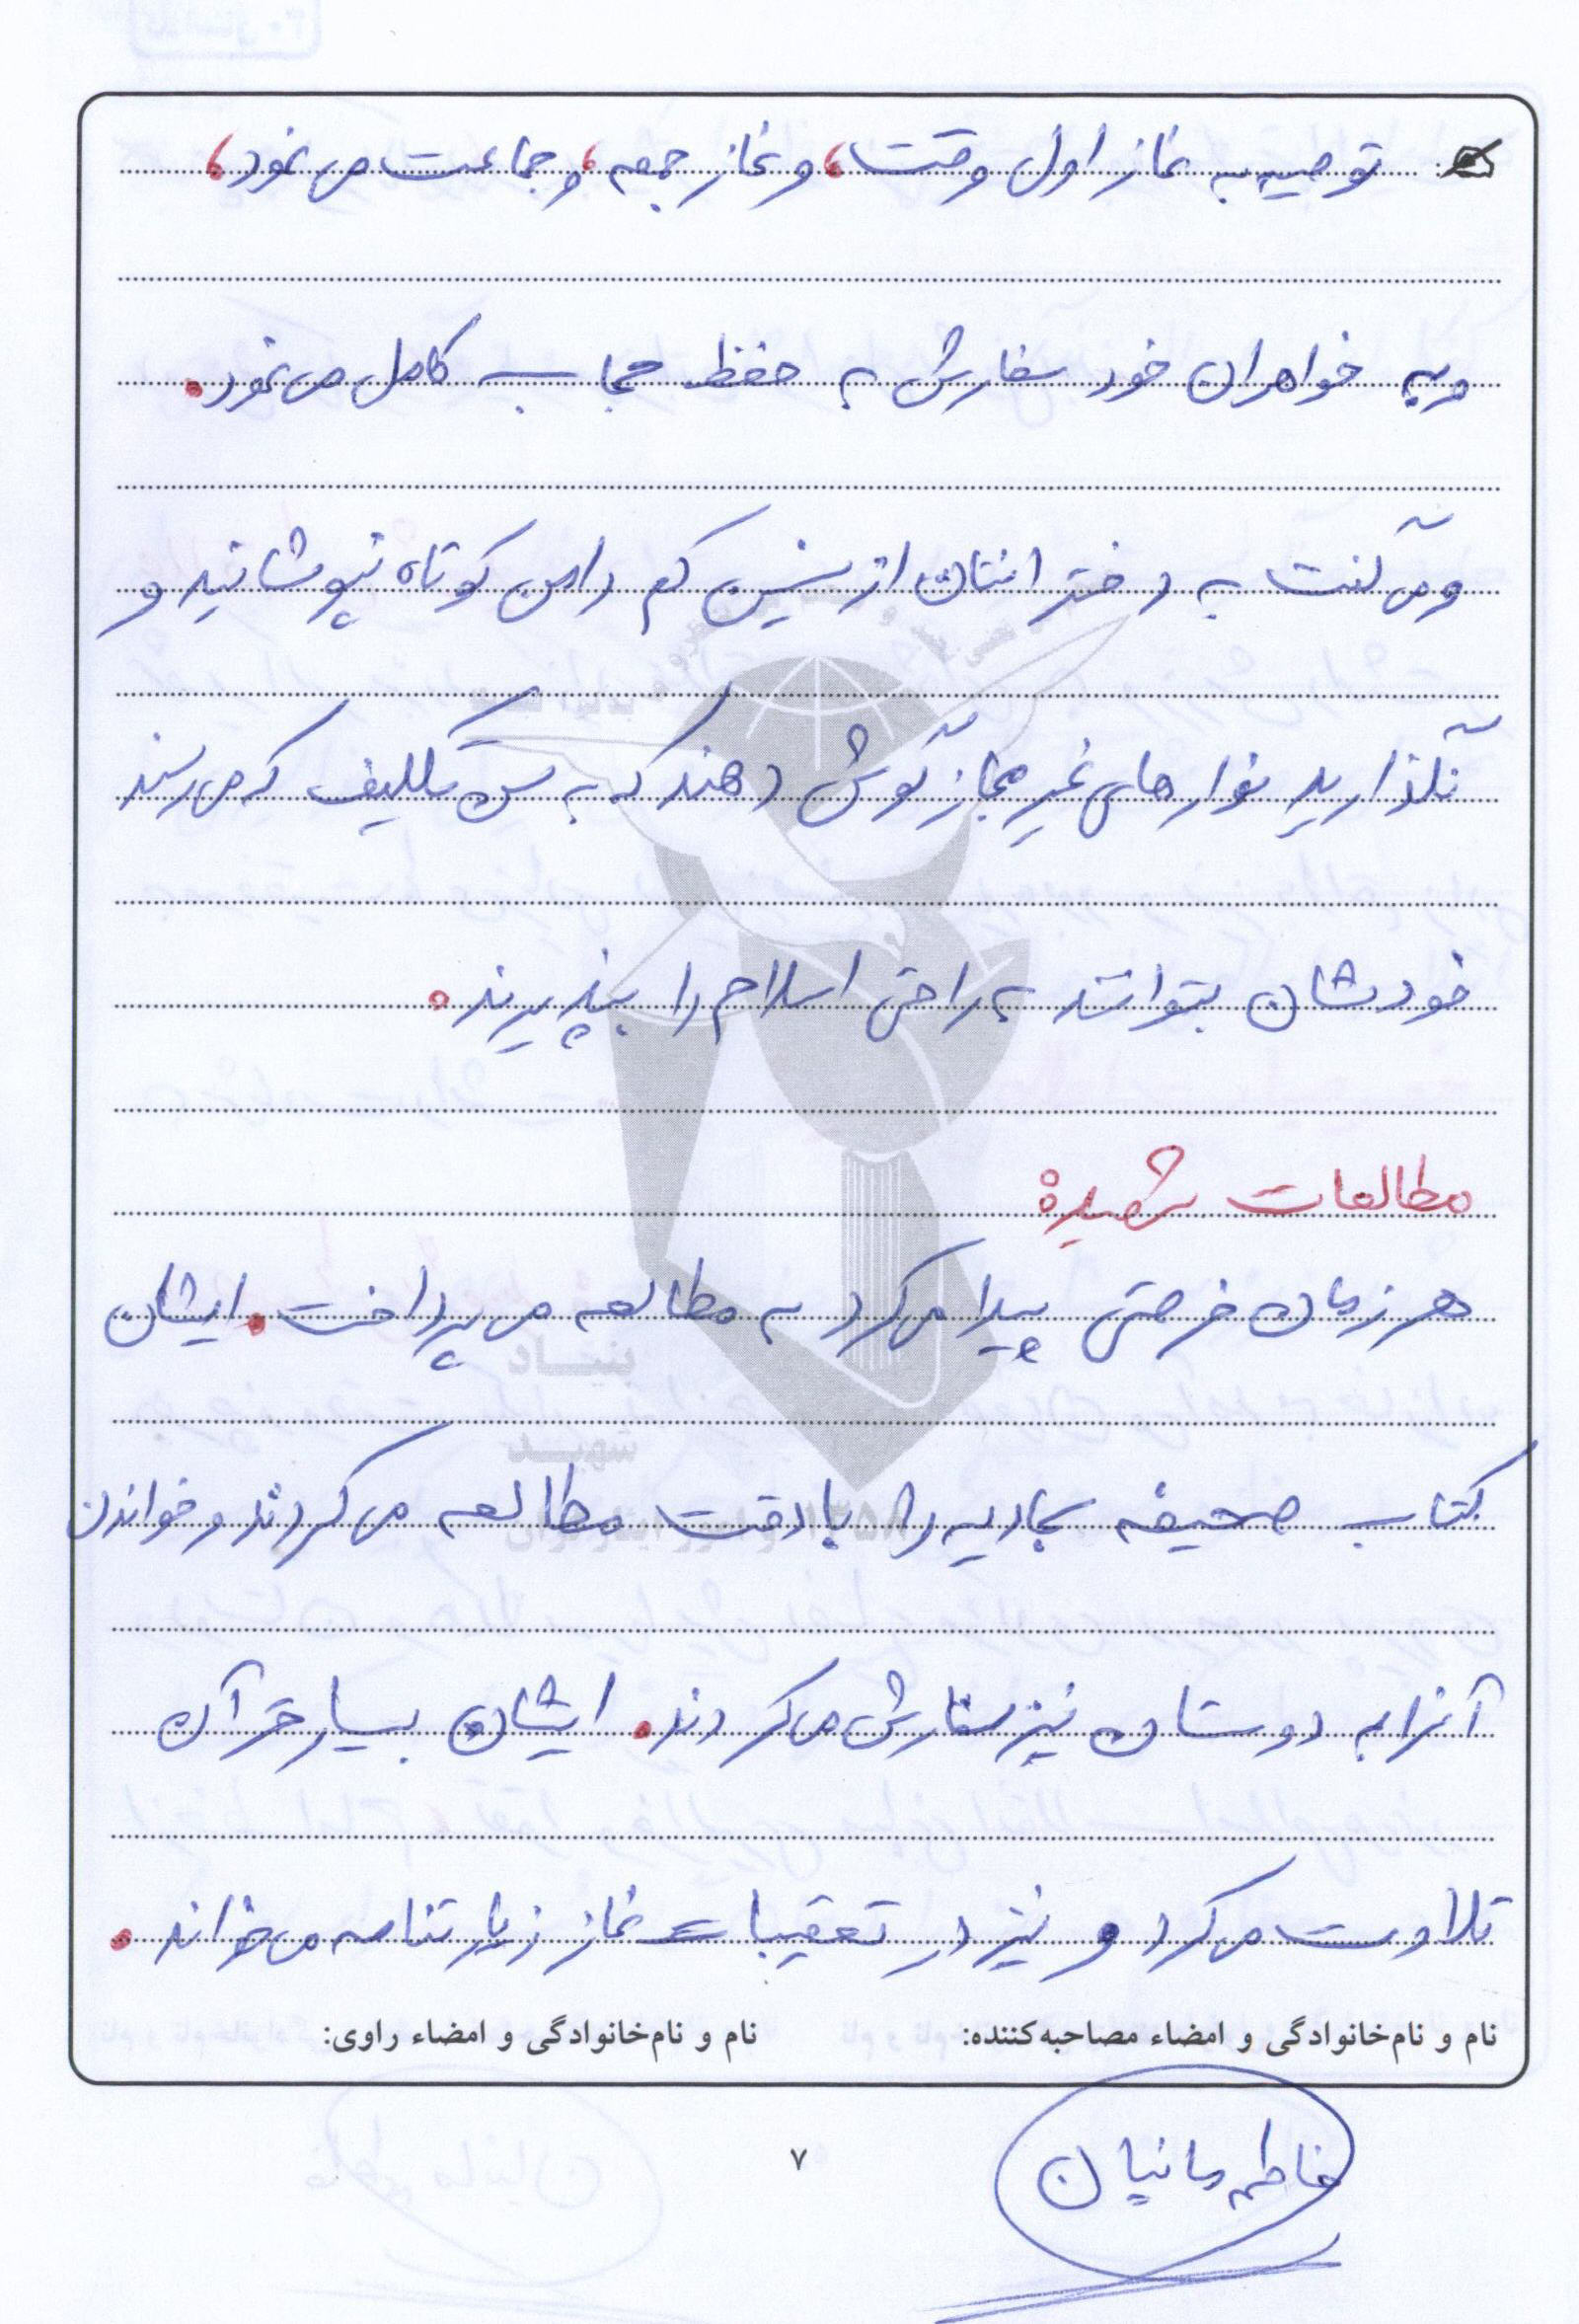 توصیه به نماز اول وقت، و نماز جمعه، و جماعت می نمود،
و به خواهران خود سفارش به حفظ حجاب کامل می نمود.
و می گفت به دخترانتان از سنین کم دامن کوتاه نپوشانید و
نگذارید نوارهای غیر مجاز گوش دهند که به سن تکلیف که می رسند
خودشان بتوانند به راحتی اسلام را بپذیرند.
مطالعات شهید:
هر زمان فرصتی پیدا می کرد به مطالعه می پرداخت. ایشان
کتاب صحیفه سجادیه را با دقت مطالعه می کردند و خواندن
آنرا به دوستان نیز سفارش می کردند. ایشان بسیار قرآن
تلاوت می کرد و نیز در تعقیبات نماز زیارتنامه می خواند.
نام و نام‌خانوادگی و امضاء مصاحبه‌کننده: نام و نام‌خانوادگی و امضاء راوی:
فاطمه مانیان
۷